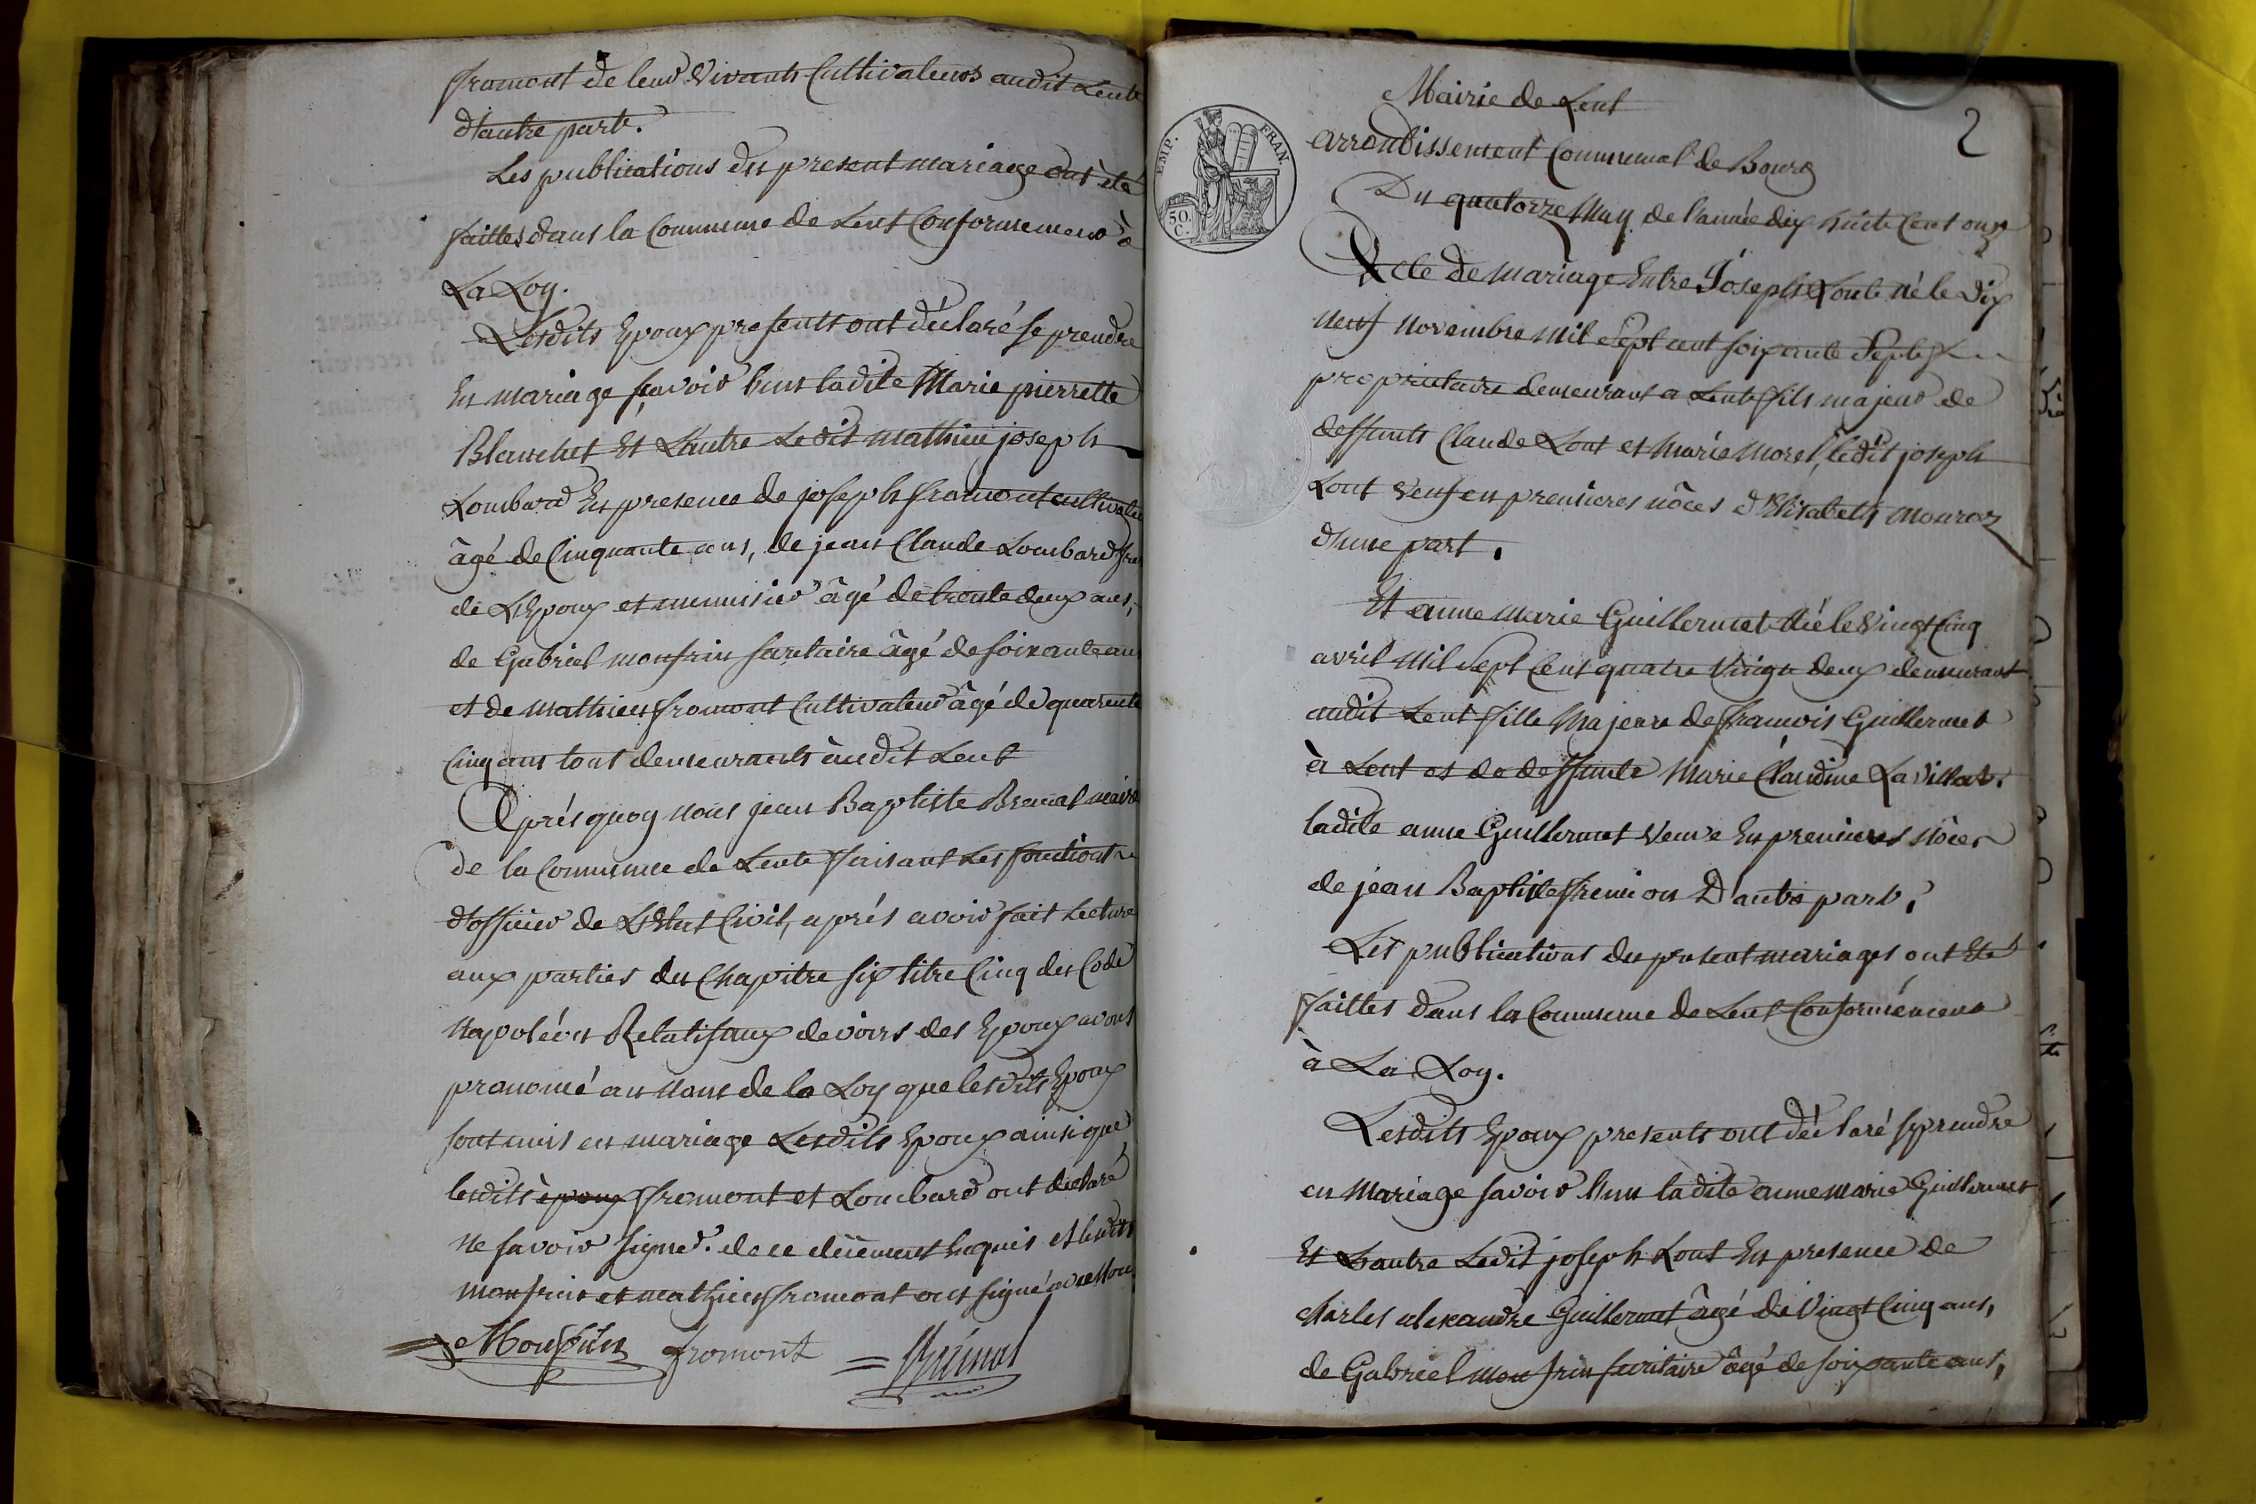 fromont de leur vivants Cultivateurs audit Lent
d'autre part.
Les publications du present mariage ont été
faittes dans la Commune de Lent Conformement à
La Loy.
Lesdits Epoux presents ont déclaré se prendre
En mariage savoir l'un ladite Marie pierrette
Blanchet Et L'autre Ledit mathieu joseph
Lombard En presence de joseph fromont cultivateur
âgé de Cinquante ans, de jean Claude Lombard frere
de L'Epoux et menuisier âgé de trente deux ans,
de Gabriel monfrin âgé de soixante ans
et de mathieu fromont Cultivateur âgé de quarente
Cinq ans tous demeurants audit Lent
Après quoy nous jean Baptiste Brenat maire
de la Commune de Lent faisant Les fonctions
d'officier de L'Etat Civil, après avoir fait Lecture
aux parties du Chapitre six titre Cinq du Code
Napoléon Relatif aux devoirs des Epoux avons
prononcé au nom de la Loy que lesdits Epoux
sont unis en mariage Lesdits Epoux ainsi que
lesdits fromont et Lombard ont déclaré
ne savoir signer. de ce düement Enquis et lesdits
monfrin et mathieu fromont ont signé avec Nous
Monfrin fromont
EMP. FRAN.
50. C.
2
Mairie de Lent
arrondissement Communal de Bourg
Du quatorze May de l'année dix huit Cent onze
Acte de mariage Entre Joseph Lont né le Dix
neuf Novembre mil Sept cent soixante Sept
propriétaire demeurant a Lent fils majeur de
deffunts Claude Lont et Marie Morel, ledit joseph
Lont veuf en premieres nôces d'Elisabeth mouroz
d'une part.
Et anne Marie Guillermet Née le Vingt Cinq
avril Mil Sept Cent quatre Vingt deux demeurant
audit Lent fille Majeure de francois Guillermet
à Lent et de deffunte Marie Claudine La Villat.
ladite anne Guillermet Veuve En premieres nôces
de jean Baptiste fremion D'autre part.
Les publications du present mariages ont Eté
faittes dans la Commune de Lent Conformément
à La Loy.
Lesdits Epoux presents ont déclaré se prendre
en Mariage savoir l'un ladite anne marie Guillermet
Et L'autre Ledit joseph Lont En presence de
charles alexandre Guillermet âgé de Vingt Cinq ans,
de Gabriel monfrin âgé de soixante ans,